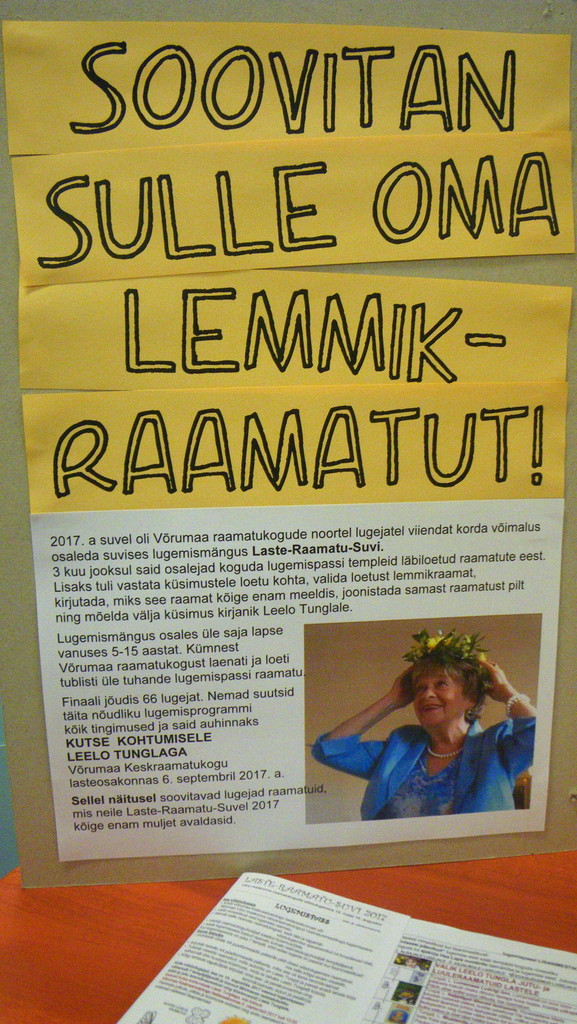 SOOVITAN
SULLE OMA
LEMMIK-
RAAMATUT!
2017. a suvel oli Võrumaa raamatukogude noortel lugejatel viiendat korda võimalus
osaleda suvises lugemismängus Laste-Raamatu-Suvi.
3 kuu jooksul said osalejad koguda lugemispassi templeid läbiloetud raamatute eest.
Lisaks tuli vastata küsimustele loetu kohta, valida loetust lemmikraamat,
kirjutada, miks see raamat kõige enam meeldis, joonistada samast raamatust pilt
ning mõelda välja küsimus kirjanik Leelo Tunglale.
Lugemismängus osales üle saja lapse
vanuses 5-15 aastat. Kümnest
Võrumaa raamatukogust laenati ja loeti
tublisti üle tuhande lugemispassi raamatu.
Finaali jõudis 66 lugejat. Nemad suutsid
täita nõudliku lugemisprogrammi
kõik tingimused ja said auhinnaks
KUTSE KOHTUMISELE
LEELO TUNGLAGA
Võrumaa Keskraamatukogu
lasteosakonnas 6. septembril 2017. a.
Sellel näitusel soovitavad lugejad raamatuid,
mis neile Laste-Raamatu-Suvel 2017
kõige enam muljet avaldasid.
LASTE-RAAMATU-SUVI 2017
LUGEMISPASS
VALIK LEELO TUNGLA JUTU- JA
LUULERAAMATUID LASTELE